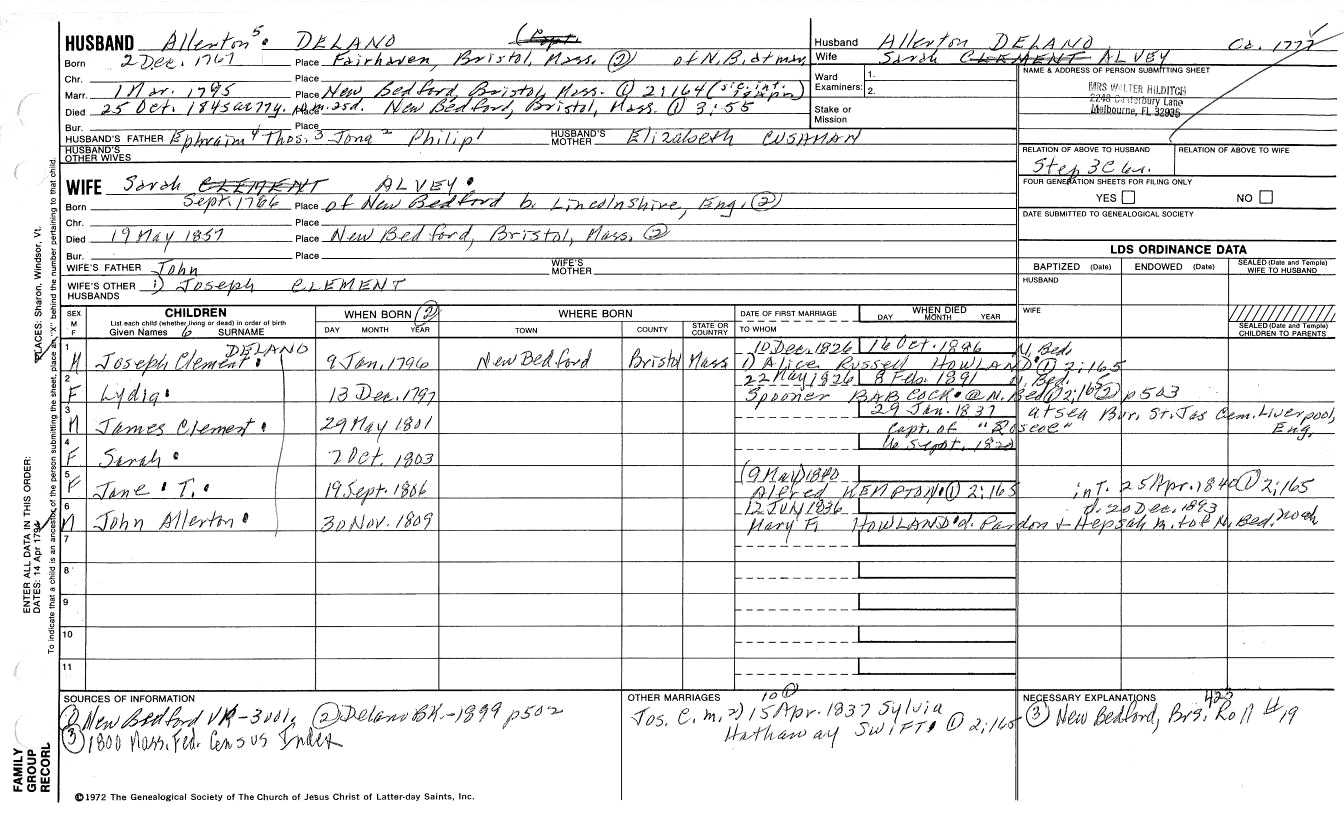 HUSBAND Allerton⁵ DELANO (Capt.
Born 2 Dec. 1767 Place Fairhaven, Bristol, Mass. (2) of N.B. at mar.
Chr. Place
Marr. 1 Mar. 1795 Place New Bedford, Bristol, Mass. (1) 2:164
Died 25 Oct. 1845 ae 77y. 10m. 25d. New Bedford, Bristol, Mass. (1) 3:55
Bur. Place
HUSBAND'S FATHER Ephraim⁴ Thos.³ Jona² Philip¹ HUSBAND'S MOTHER Elizabeth CUSHMAN
HUSBAND'S OTHER WIVES
Husband Allerton DELANO
Wife Sarah CLEMENT ALVEY
Ward Examiners: 1.
2.
Stake or Mission
NAME & ADDRESS OF PERSON SUBMITTING SHEET
MRS WALTER HILDITCH
2248 Canterbury Lane
Melbourne, FL 32935
RELATION OF ABOVE TO HUSBAND RELATION OF ABOVE TO WIFE
Step 3C
FOUR GENERATION SHEETS FOR FILING ONLY
YES NO
DATE SUBMITTED TO GENEALOGICAL SOCIETY
WIFE Sarah CLEMENT ALVEY
Born Sept. 1766 Place of New Bedford b. Lincolnshire, Eng. (2)
Chr. Place
Died 19 May 1857 Place New Bedford, Bristol, Mass. (2)
Bur. Place
WIFE'S FATHER John WIFE'S MOTHER
WIFE'S OTHER HUSBANDS 1) Joseph CLEMENT
LDS ORDINANCE DATA
BAPTIZED (Date) ENDOWED (Date) SEALED (Date and Temple) WIFE TO HUSBAND
HUSBAND
WIFE
SEALED (Date and Temple) CHILDREN TO PARENTS
SEX M F
CHILDREN
List each child (whether living or dead) in order of birth
Given Names 6 SURNAME
WHEN BORN (2)
DAY MONTH YEAR
WHERE BORN
TOWN COUNTY STATE OR COUNTRY
DATE OF FIRST MARRIAGE
TO WHOM
WHEN DIED
DAY MONTH YEAR
1 M Joseph Clement DELANO 9 Jan. 1796 New Bedford Bristol Mass 10 Dec. 1826 16 Oct. 1886 N. Bed.
1) Alice Russell HOWLAND (1) 2:165
2 F Lydia 13 Dec. 1797 22 May 1826 8 Feb. 1891 N. Bed.
Spooner BABCOCK @ N. Bed (2) p503
3 M James Clement 29 May 1801 29 Jan. 1837 at sea Bur. St. Jas Cem. Liverpool, Eng.
Capt. of "Roscoe"
4 F Sarah 7 Oct. 1803
5 F Jane T. 19 Sept. 1806 (9 May) 1840
Alfred KEMPTON (1) 2:165 int. 25 Apr. 1840 (1) 2:165
6 M John Allerton 30 Nov. 1809 12 Jun 1836 d. 20 Dec. 1893
Mary F. HOWLAND d. Pardon & Hepsah m. tof N. Bed.
7
8
9
10
11
SOURCES OF INFORMATION
(1) New Bedford VR- (2) Delano BK.-1899 p502
(3) 1800 Mass. Fed. Census Index
OTHER MARRIAGES
Jos. C. m. 2) 15 Apr. 1837 Sylvia
Hathaway SWIFT (1) 2:165
NECESSARY EXPLANATIONS
423
(3) New Bedford, Brs. Roll #19
©1972 The Genealogical Society of The Church of Jesus Christ of Latter-day Saints, Inc.
FAMILY GROUP RECORD
ENTER ALL DATA IN THIS ORDER:
DATES: 14 Apr 1794
PLACES: Sharon, Windsor, Vt.
To indicate that a child is an ancestor of the person submitting the sheet, place an "X" behind the number pertaining to that child.